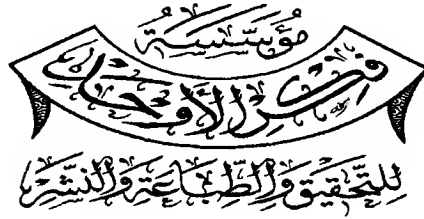 مُؤَسَّسَةُ
فِكْرِ الأَوْحَد
لِلتَّحْقِيقِ وَالطِّبَاعَةِ وَالنَّشْرِ